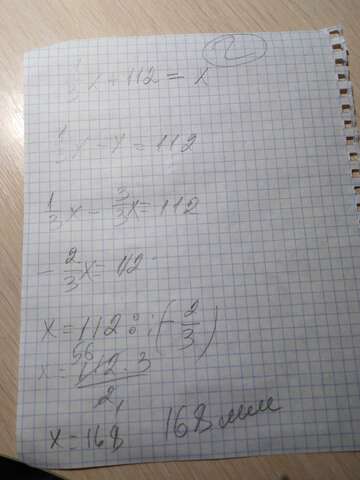 2
x + 112 = x
1/3 x - x = 112
1/3 x - 3/3 x = 112
- 2/3 x = 112
x = 112 : (- 2/3)
x = 56 112 · 3 / 2 1
x = 168 168 мин